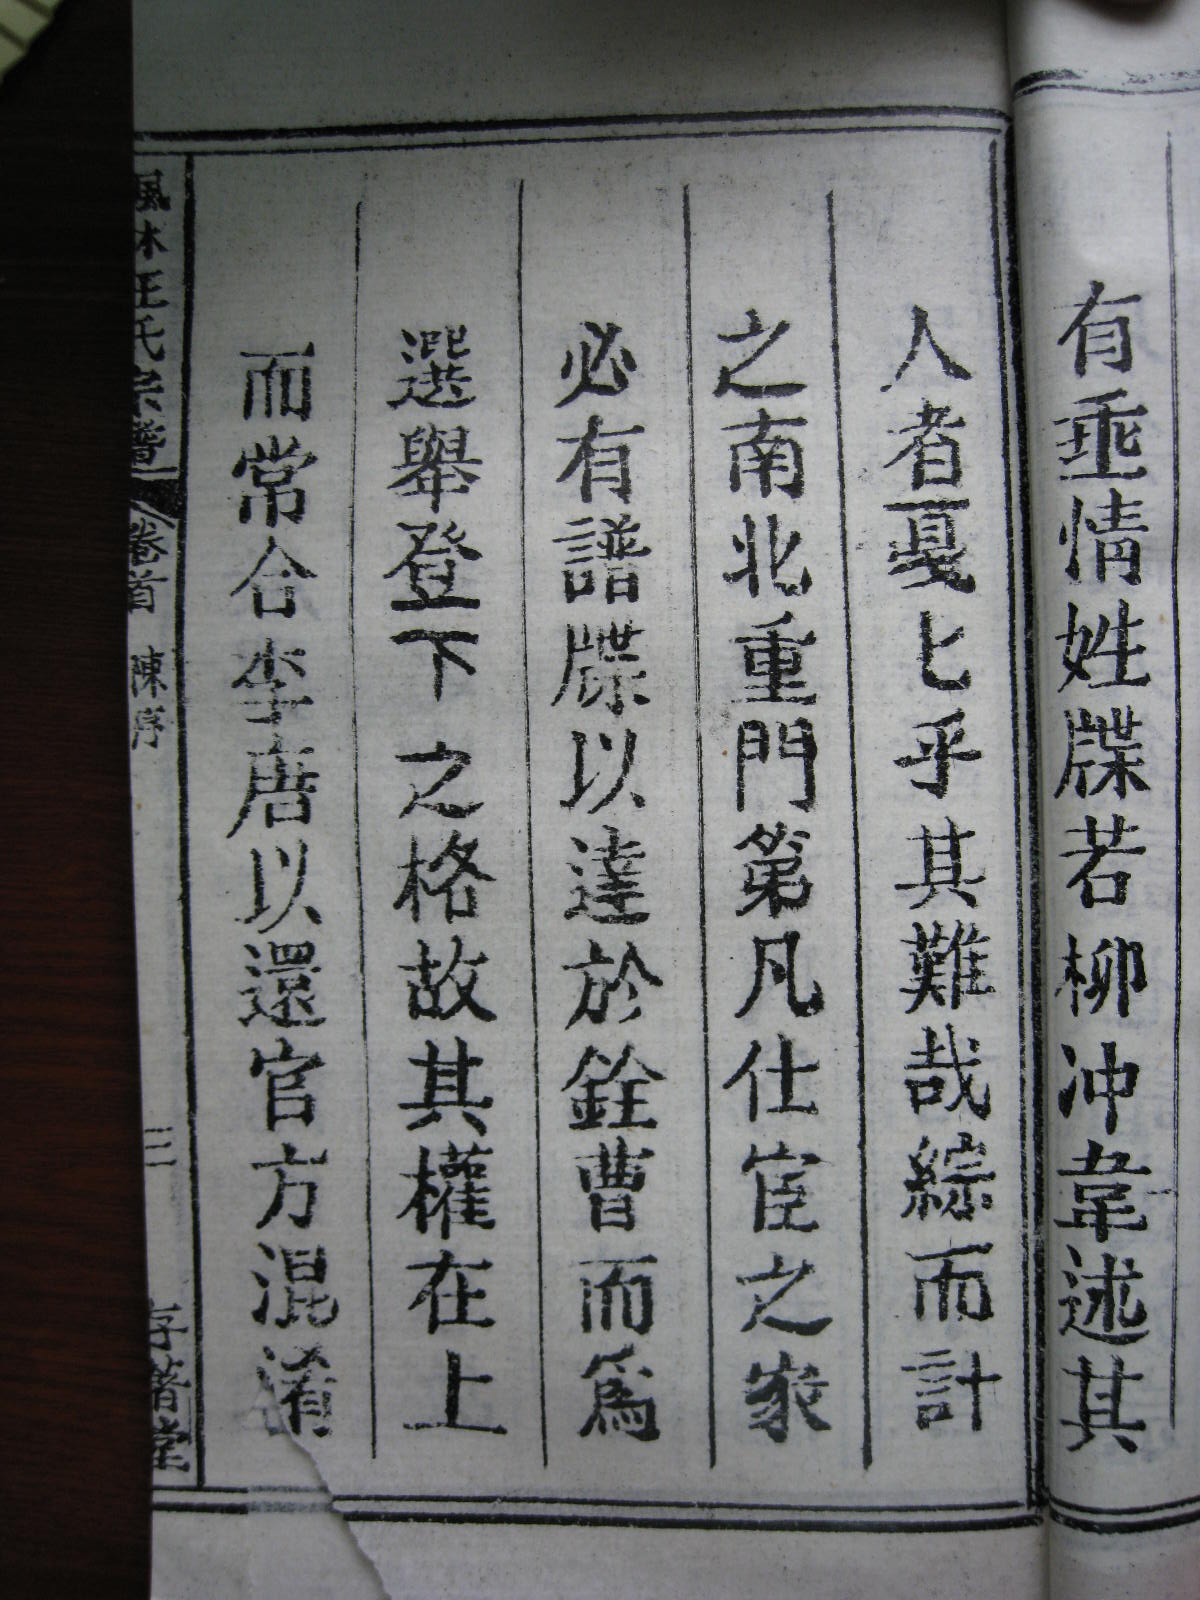 有乖情姓牒若柳沖韋述其
人者戛匕乎其難哉綜而計
之南北重門第凡仕宦之家
必有譜牒以達於銓曹而爲
選舉登下之格故其權在上
而常合李唐以還官方混淆
風林王氏宗譜 卷首 陳序 三 存著堂